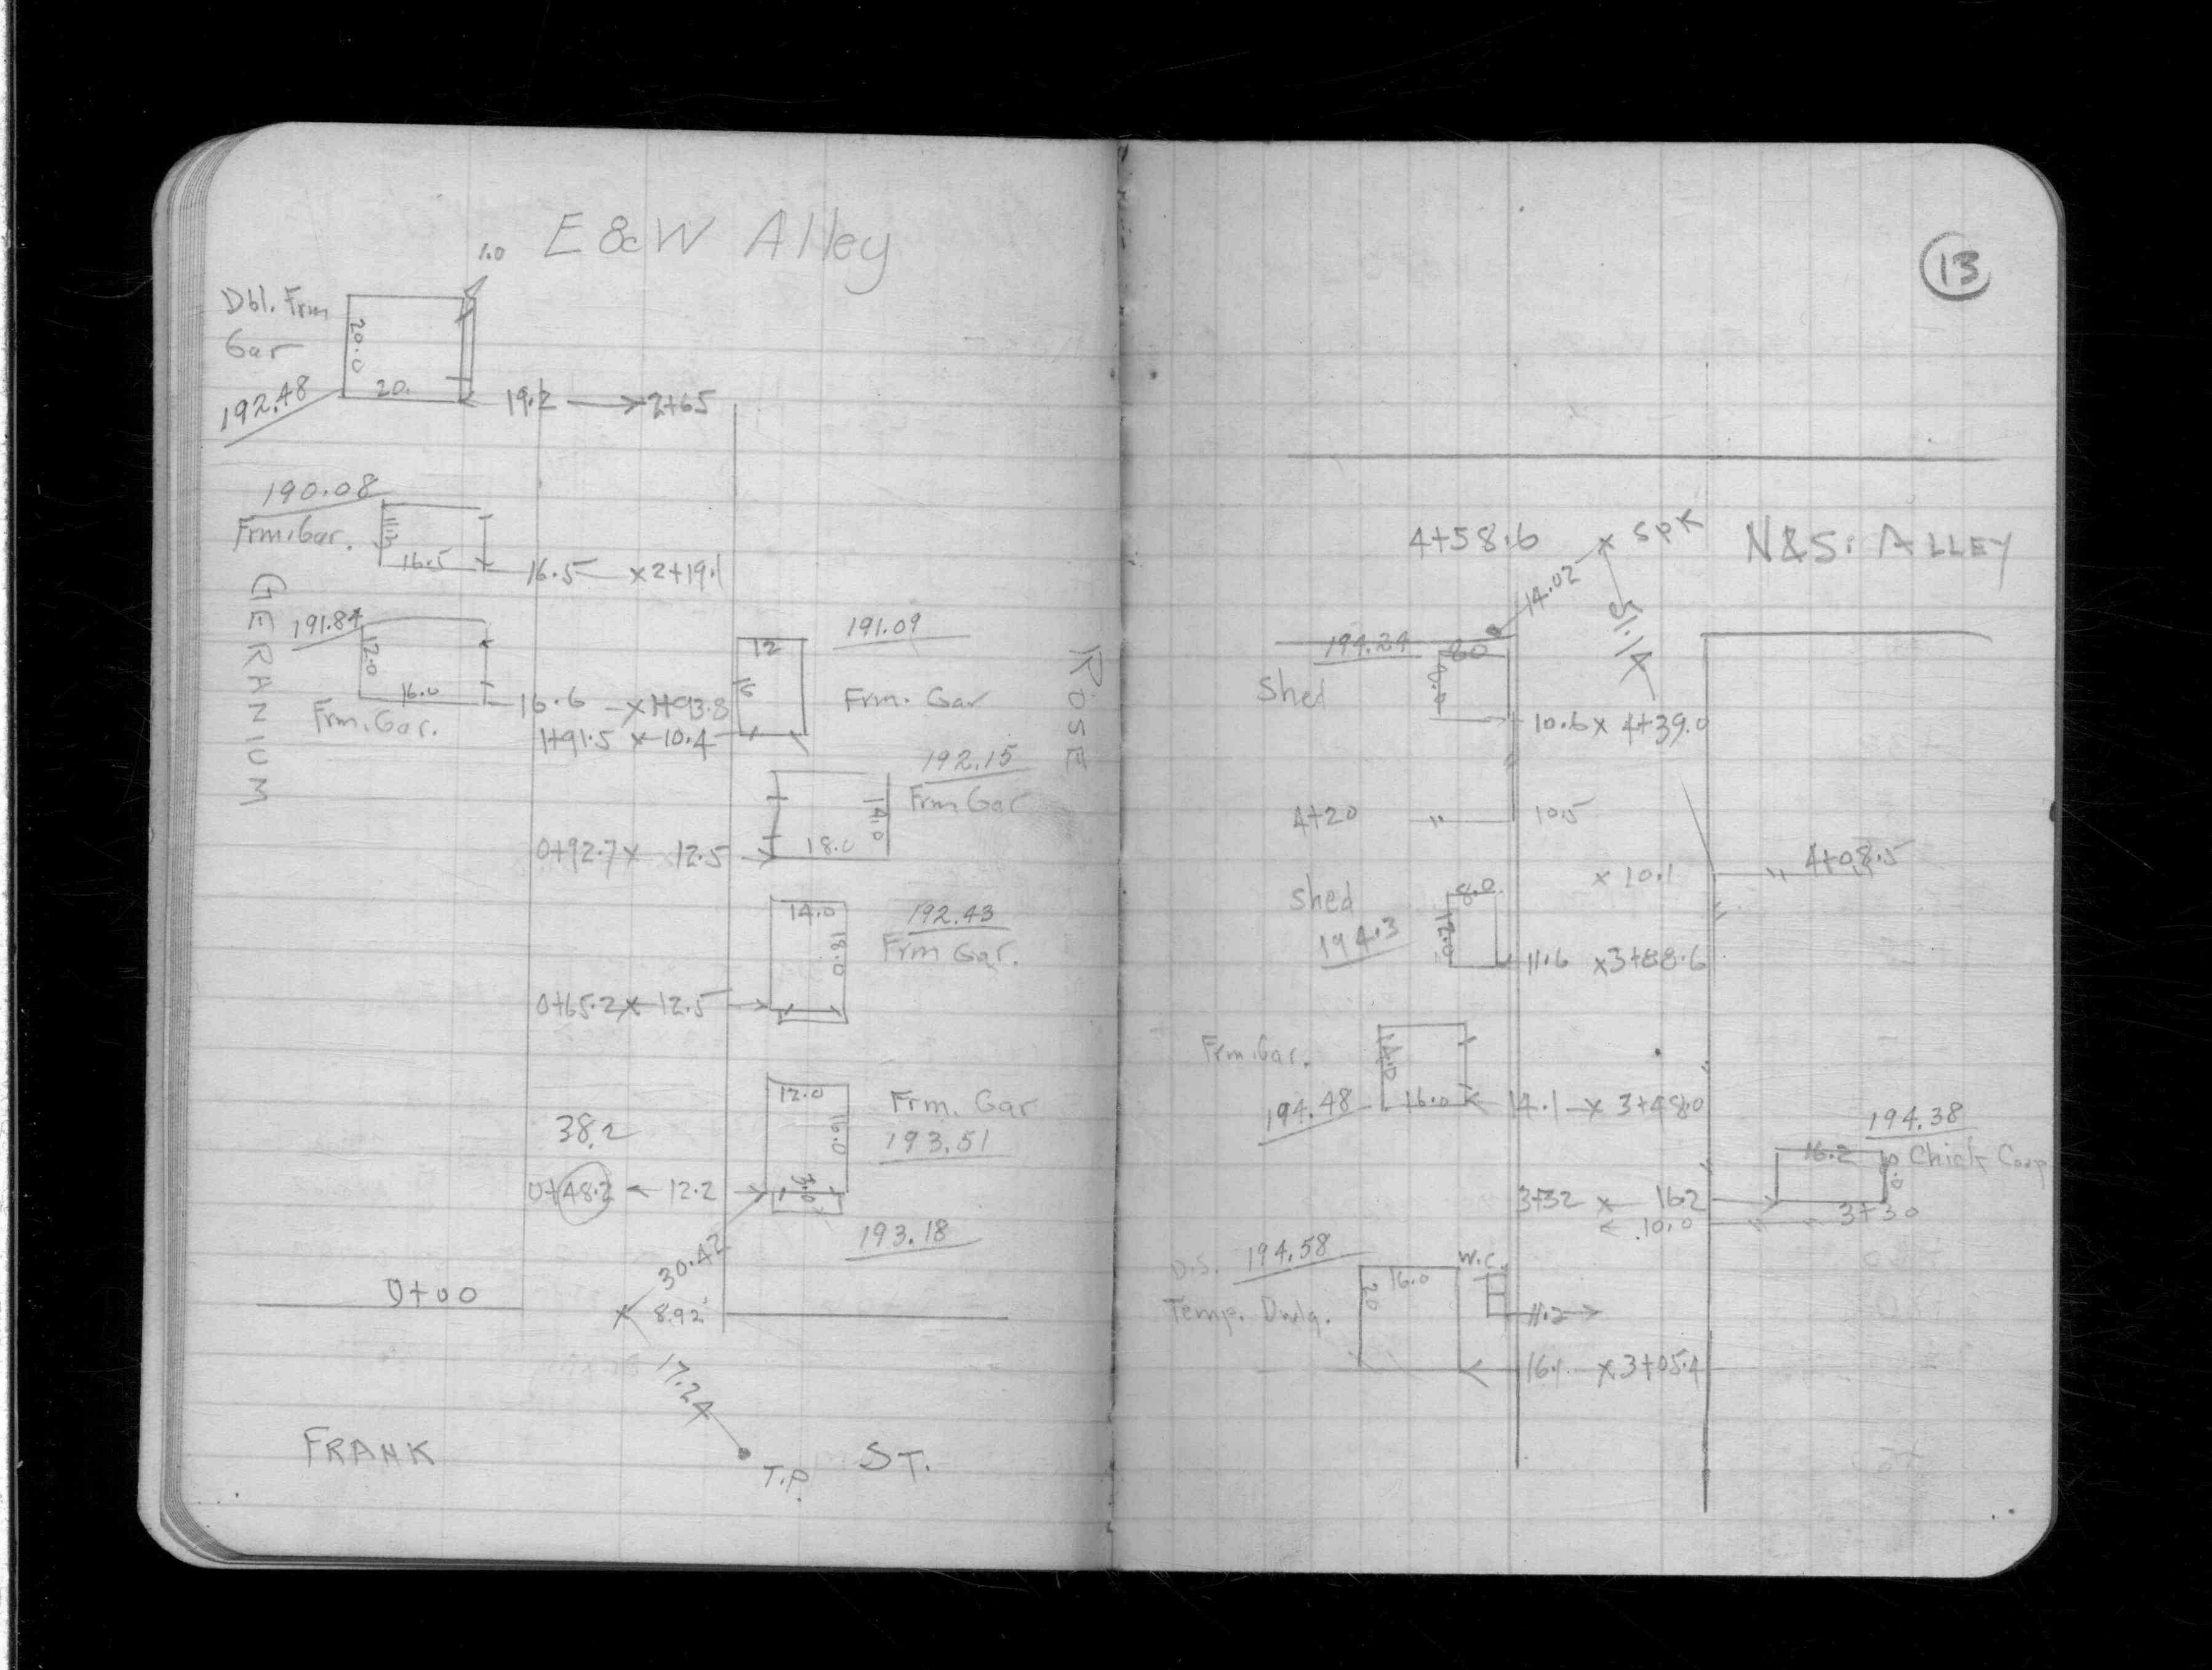 E&W Alley
1.0
Dbl. Frm
Gar
20.0
20.
192.48
19.2 2+65
190.08
Frm. Gar.
11.3
16.5
16.5 x 2+19.1
GERANIUM
191.84
12.0
16.0
Frm. Gar.
16.6 x 1+93.8
12
16
191.09
Frm. Gar
1+91.5 x 10.4
ROSE
192.15
Frm Gar
14.0
18.0
0+92.7 x 12.5
14.0
18.0
192.43
Frm Gar.
0+65.2 x 12.5
12.0
16.0
Frm. Gar
193.51
38.2
0+48.2 12.2
3.0
193.18
30.42
0+00
8.92'
17.24
FRANK ST.
T.P.
13
4+58.6
SPK
N&S. ALLEY
14.02
51.14
194.29
Shed
8.0
10.6 x 4+39.0
4+20 " 10.5
x 10.1 " 4+08.5
Shed
8.0
12.0
194.3
11.6 x 3+88.6
Frm. Gar.
14.0
16.0
194.48
14.1 x 3+48.0
194.38
16.2
8.0
Chick Coop
3+32 x 16.2
10.0 " " 3+30
D.S. 194.58
Temp. Dwlg.
16.0
20
W.C.
11.2
16.1 x 3+05.4